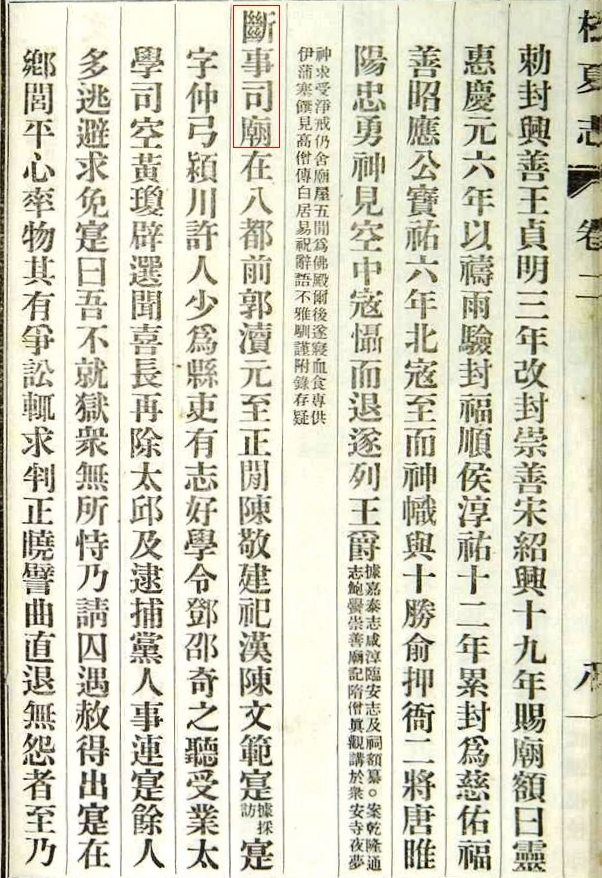 校夏志 卷二 八
勅封興善王貞明三年改封崇善宋紹興十九年賜廟額曰靈
惠慶元六年以禱雨驗封福順侯淳祐十二年累封爲慈佑福
善昭應公寶祐六年北寇至而神幟與十勝俞押衙二將唐睢
陽忠勇神見空中寇懾而退遂列王爵據嘉泰志咸淳臨安志及祠額纂○案乾隆通
志鮑㬊崇善廟記隋僧眞觀講於衆安寺夜夢
神求受淨戒仍舍廟屋五間爲佛殿爾後遂寢血食專供
伊蒲塞饌見高僧傳白居易祝辭語不雅馴謹附錄存疑
斷事司廟在八都前郭瀆元至正閒陳敬建祀漢陳文範寔據採
訪寔
字仲弓潁川許人少爲縣吏有志好學令鄧邵奇之聽受業太
學司空黃瓊辟選聞喜長再除太邱及逮捕黨人事連寔餘人
多逃避求免寔曰吾不就獄衆無所恃乃請囚遇赦得出寔在
鄉閭平心率物其有爭訟輒求判正曉譬曲直退無怨者至乃